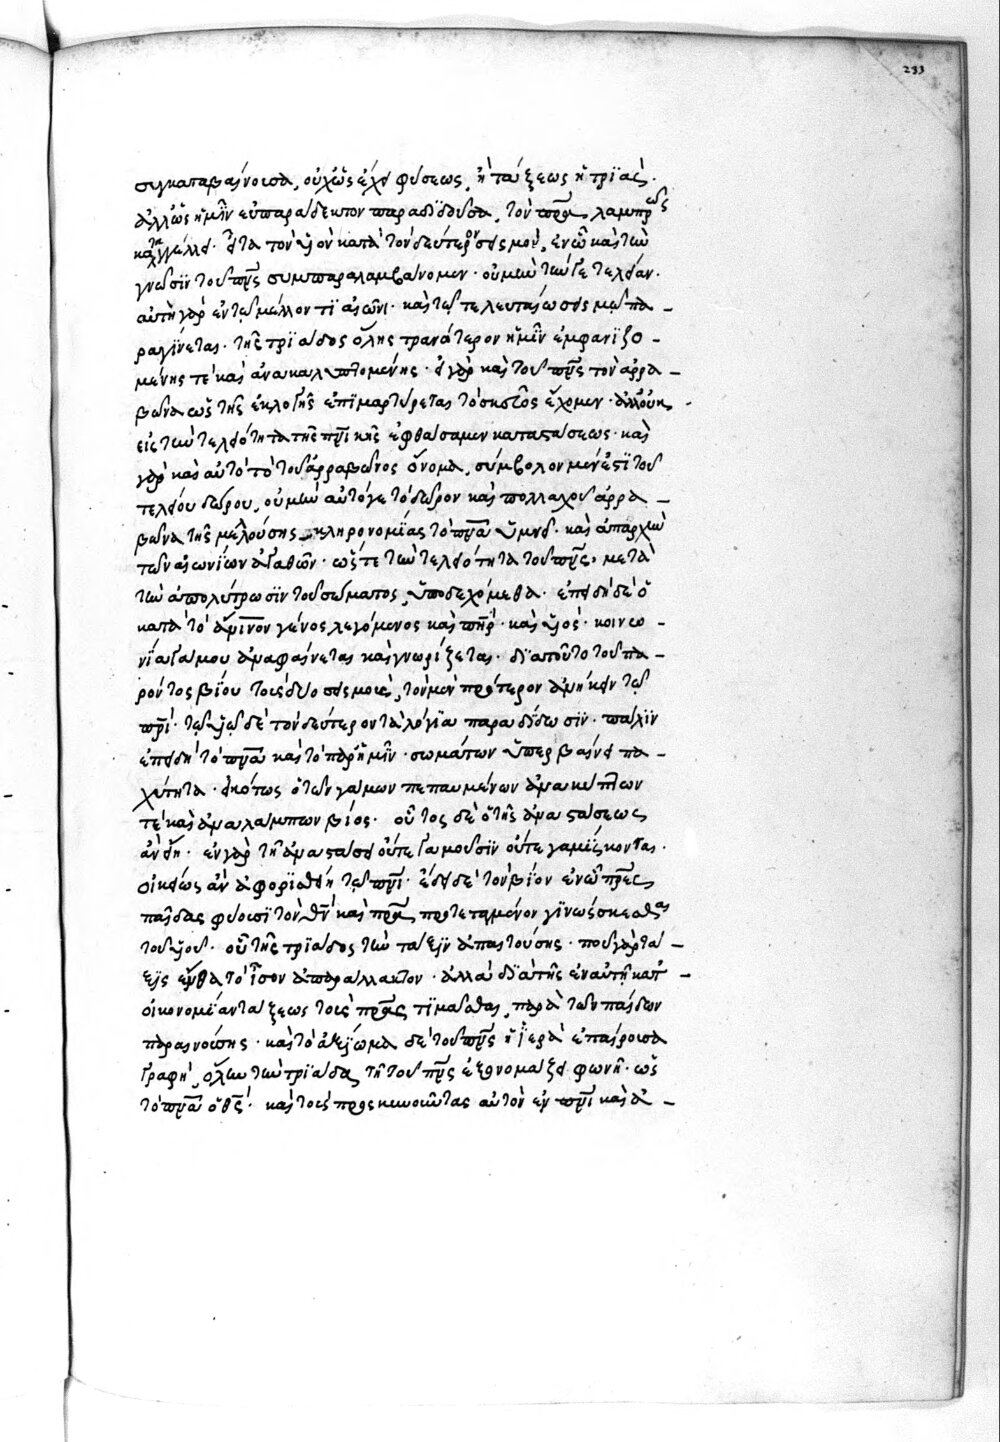 233
συγκαταβαίνουσα, οὐχ ὡς ἔχει φύσεως, ἢ τάξεως ἡ τριὰς.
ἀλλ' ὡς ἡμῖν εὐπαράδεκτον παραδιδοῦσα, τὸν πρ̅α λαμπρῶς
καταγγέλλει. εἶτα τὸν υἱὸν κατὰ τὸν δεύτερον σεισμόν, ἐν ὧ καὶ τὴν
γνῶσιν τοῦ πν̅ς συμπαραλαμβάνομεν. οὐ μὴν τήν γε τελείαν.
αὐτὴ γὰρ ἐν τῶ μέλλοντι αἰῶνι. καὶ τῶ τελευταίω σεισμῶ πα-
ραγίνεται. τῆς τριάδος ὅλης τρανότερον ἡμῖν ἐμφανιζο-
μένης τὲ καὶ ἀνακαλυπτομένης. εἰ γὰρ καὶ τοῦ πν̅ς τὸν ἀρρα-
βῶνα ὡς τῆς ἐκλογῆς ἐπιμαρτύρεται τὸ σκεῦος ἔχομεν. ἀλλ' οὐκ
εἰς τὴν τελειότητα τῆς πν̅ικῆς ἐφθάσαμεν καταστάσεως. καὶ
γὰρ καὶ αὐτὸ τὸ τοῦ ἀρραβῶνος ὄνομα, σύμβολον μέν ἐστι τοῦ
τελείου δώρου, οὐ μὴν αὐτό γε τὸ δῶρον καὶ πολλαχοῦ ἀρρα-
βῶνα τῆς μελλούσης κληρονομίας τὸ πν̅α ὑμνεῖ. καὶ ἀπαρχὴν
τῶν αἰωνίων ἀγαθῶν. ὥστε τὴν τελειότητα τοῦ πν̅ς, μετὰ
τὴν ἀπολύτρωσιν τοῦ σώματος, ὑποδεχόμεθα. ἐπειδὴ δὲ ὁ
κατὰ τὸ ἀν̅ινον γένος λεγόμενος καὶ πη̅ρ. καὶ υἱός. κοινω-
νία γάμου ἀναφαίνεται καὶ γνωρίζεται. διὰ τοῦτο τοῦ πα-
ρόντος βίου τοὺς δύο σεισμοὺς, τὸν μὲν πρότερον ἀνῆκεν τῶ
πρ̅ι. τῶ υἱῶ δὲ τὸν δεύτερον τὰ λόγια παραδίδωσιν. πάλιν
ἐπειδὴ τὸ πν̅α καὶ τὸ παρ' ἡμῖν. σωμάτων ὑπερβαίνει πα-
χύτητα. εἰκότως ὁ τῶν γάμων πεπαυμένων ἀνακύπτων
τὲ καὶ ἀναλάμπων βίος. οὗτος δὲ ὁ τῆς ἀναστάσεως
ἂν εἴη. ἐν γὰρ τῆ ἀναστάσει οὔτε γαμοῦσιν οὔτε γαμίσκονται.
οἰκείως ἂν ἀφορισθείη τῶ πν̅ι. ἔδει δὲ τὸν βίον ἐν ὧ πρ̅ες
παῖδας φύουσι τὸν θν̅ καὶ πρ̅α προτεταγμένον γινώσκεσθαι
τοῦ υἱοῦ. οὐ τῆς τριάδος τὴν τάξιν ἀπαιτούσης. ποῦ γὰρ τά-
ξις ἔνθα τὸ ἴσον ἀπαράλλακτον. ἀλλὰ διὰ τῆς ἐν αὐτῆ κατ'
οἰκονομίαν τάξεως τοὺς πρ̅ας τιμᾶσθαι, παρὰ τῶν παίδων
παραινούσης. καὶ τὸ ἀξίωμα δὲ τοῦ πν̅ς ἡ ἱερὰ ἐπαίρουσα
γραφὴ, ὅλην τὴν τριάδα τῆ τοῦ πν̅ς ἐξονομάζει φωνῆ. ὡς
τὸ πν̅α ὁ θς̅. καὶ τοὺς προσκυνοῦντας αὐτὸν ἐν πν̅ι καὶ ἀ-